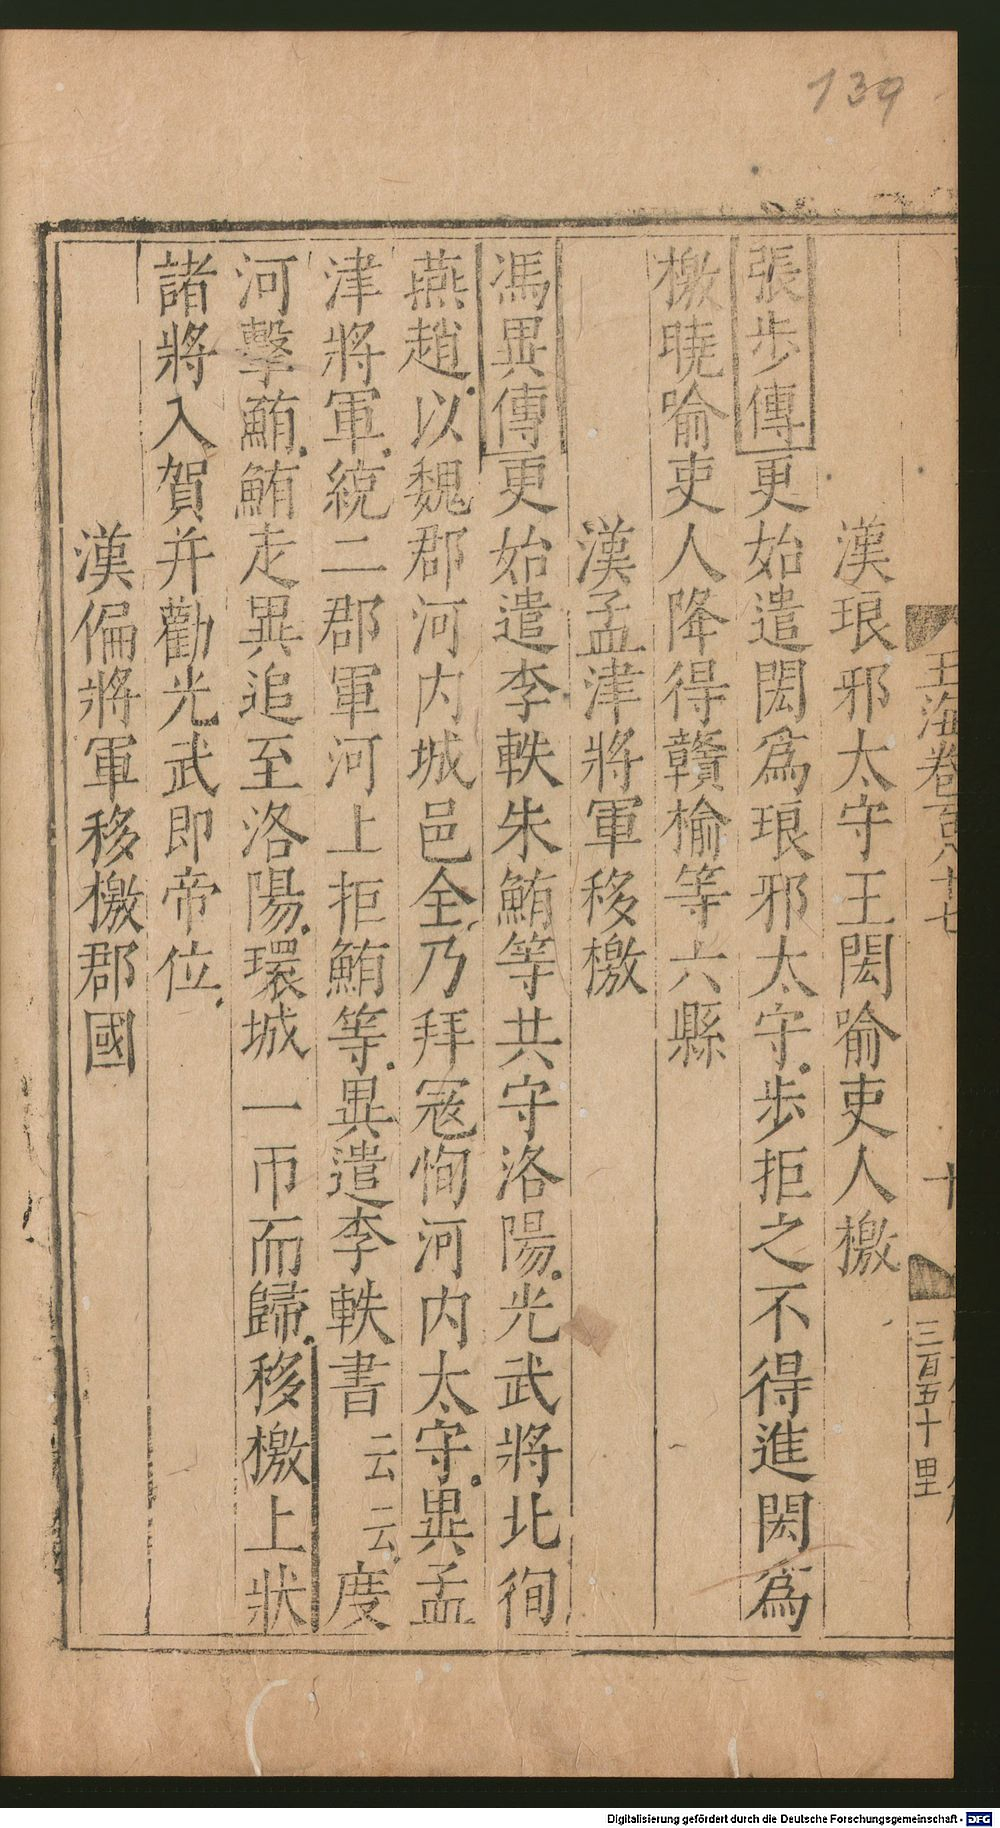 139
玉海卷百八十七
十
三百五十里
漢琅邪太守王閎喻吏人檄
張步傳更始遣閎爲琅邪太守步拒之不得進閎爲
檄曉喻吏人降得贛榆等六縣
漢孟津將軍移檄
馮異傳更始遣李軼朱鮪等共守洛陽光武將北徇
燕趙以魏郡河内城邑全乃拜宼恂河内太守異孟
津將軍統二郡軍河上拒鮪等異遣李軼書云云度
河擊鮪鮪走異追至洛陽環城一帀而歸移檄上狀
諸將入賀并勸光武即帝位
漢偏將軍移檄郡國
Digitalisierung gefördert durch die Deutsche Forschungsgemeinschaft - DFG